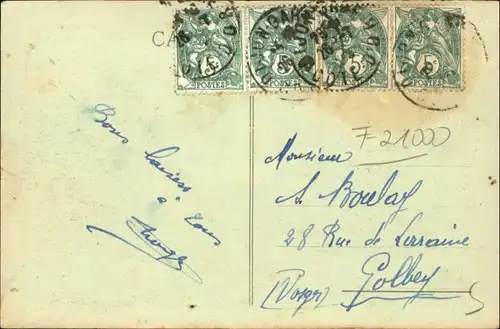 CA
5c
POSTES
5c
POSTES
5c
POSTES
5c
POSTES
Bons baisers
à tous
F 21000
Monsieur
A Boulay
28 Rue de Lorraine
Golbey
(Vosges)